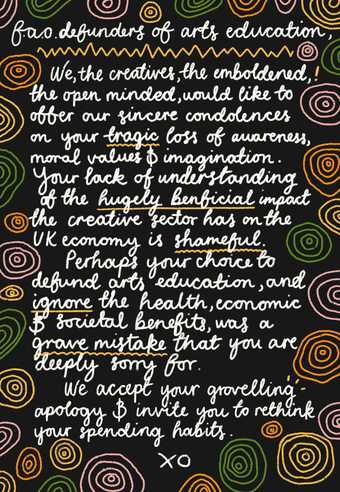 f.a.o. defunders of arts education,
We, the creatives, the emboldened,
the open minded, would like to
offer our sincere condolences
on your tragic loss of awareness,
moral values & imagination.
Your lack of understanding
of the hugely benficial impact
the creative sector has on the
UK economy is shameful.
Perhaps your choice to
defund arts education, and
ignore the health, economic
& societal benefits, was a
grave mistake that you are
deeply sorry for.
We accept your grovelling
apology & invite you to rethink
your spending habits.
XO